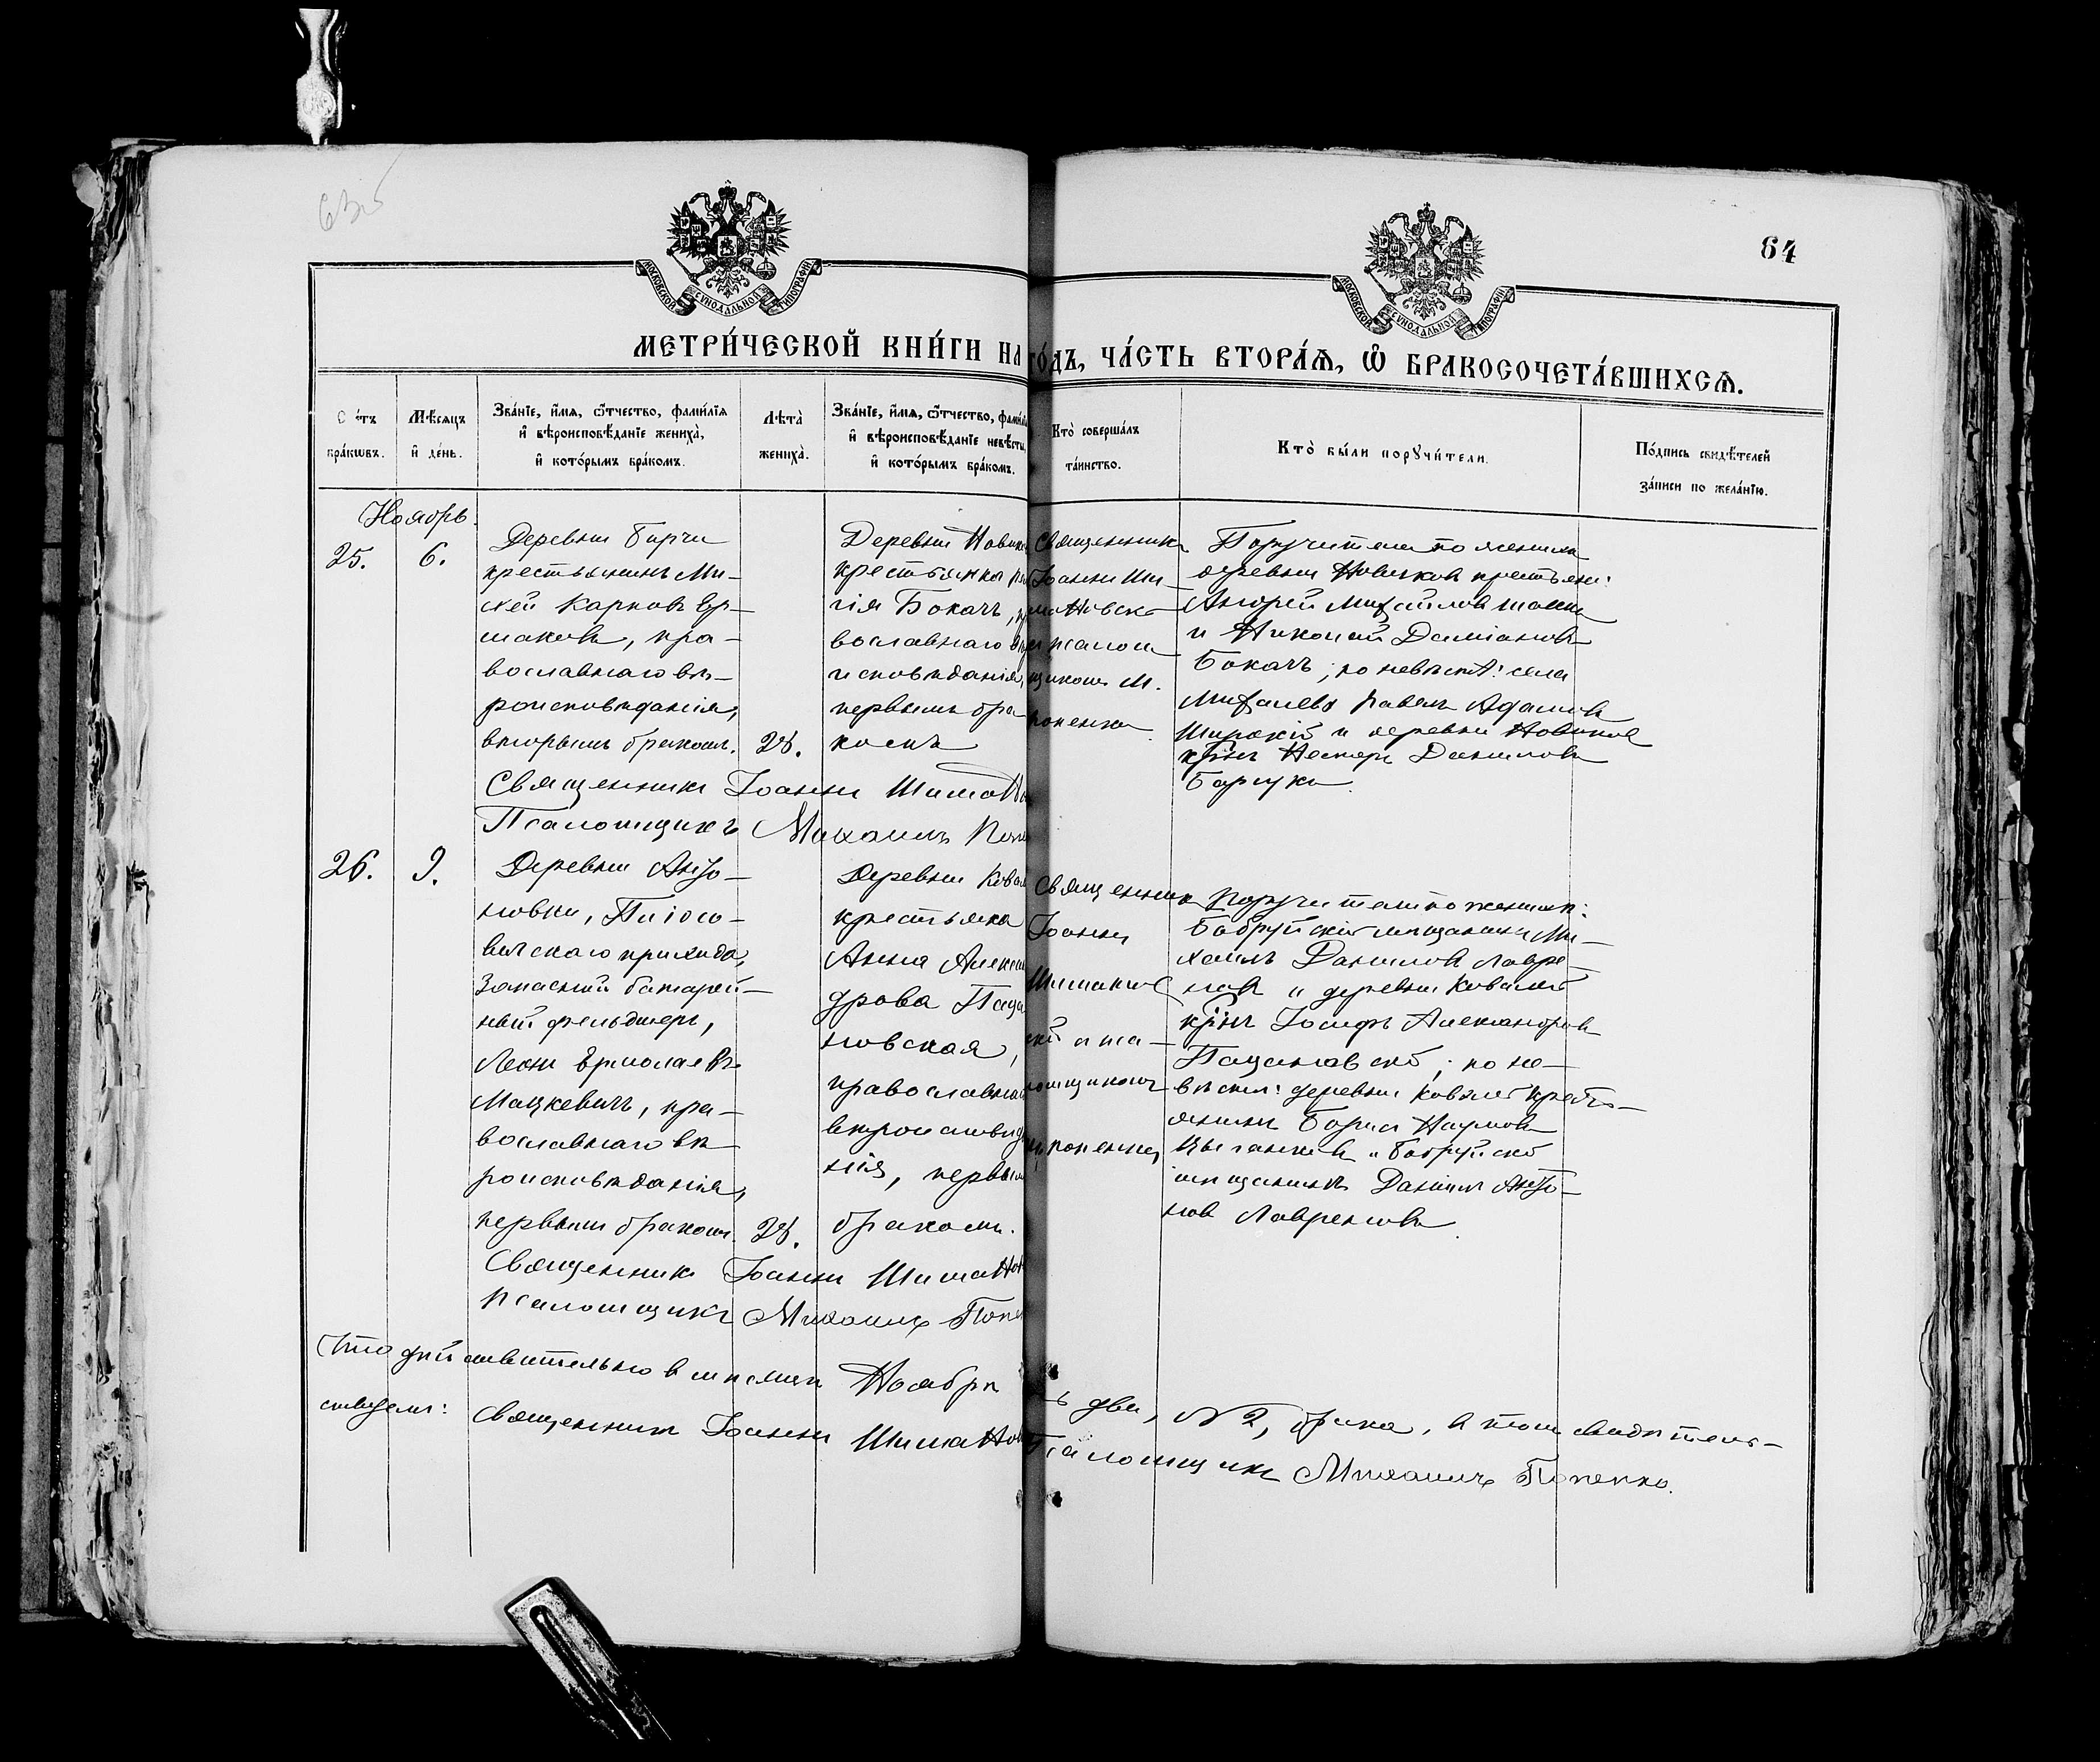 63об
64
МОСКОВСКОЙ СУНОДАЛЬНОЙ ТИПОГРАФІИ
МОСКОВСКОЙ СУНОДАЛЬНОЙ ТИПОГРАФІИ
МЕТРИ́ЧЕСКОЙ КНИ́ГИ НА ГО́ДЪ, ЧА́СТЬ ВТОРА́Ѧ, Ѽ БРАКОСОЧЕТА́ВШИХСѦ.
С ётъ
бра́кѡвъ.
Мѣ́сяцъ
и҆ де́нь.
Зва́нїе, и҆́мѧ, ѻ҆́тчество, фами́лїѧ
и҆ вѣроисповѣ́данїе жениха̀,
и҆ кото́рымъ бра́комъ.
Лѣ́та
жениха̀.
Зва́нїе, и҆́мѧ, ѻ҆́тчество, фами́лї
и҆ вѣроисповѣ́данїе невѣ́сты,
и҆ кото́рымъ бра́комъ.
Кто̀ соверша́лъ
та́инство.
Кто̀ бы́ли порꙋчи́тели.
По́дпись свидѣ́телей
за́писи по жела́нїю.
Ноябрь.
25.
6.
Деревни Бирчи
крестьянинъ Ми-
хей Карповъ Ер-
маковъ, пра-
вославнаго вѣ-
роисповѣданія,
вторымъ бракомъ.
28.
Деревни Новик
крестьянка
гія Бокачъ,
вославнаго
исповѣданія,
первымъ бра-
комъ
Священникъ
Іоаннъ Ши-
мановск
и псалом
щикомъ М.
Поручители по женихѣ
деревни Новиковъ крестьяне:
Андрей Михайловъ
и Николай Даміановъ
Бокачъ; по невѣстѣ: села
Михалева Павелъ Адамовъ
Широкій и деревни Новиков
кр҃нъ Несторъ Даниловъ
Священникъ Іоаннъ Шиманов
Псаломщикъ Михаилъ Поп
26.
9.
Деревни Анзо-
новки,
скаго прихода,
Запасный батарей-
ный фельдшеръ,
Леонъ Ермолаевъ
Мацкевичъ, пра-
вославнаго вѣ
роисповѣданія,
первымъ бракомъ.
28.
Деревни Ковал
крестьянка
Анна Алексан
дрова Паца
новская,
православна
вѣроисповѣда
нія, первым
бракомъ.
Священникъ
Іоаннъ
Шиманов
скій и пса-
ломщикомъ
Поручители по женихѣ:
Бобруйскій мѣщанинъ Ми-
хаилъ Даниловъ Лавре-
новъ и деревни Ковалей
кр҃нъ Іосифъ Александровъ
Пацановскій; по не-
вѣстѣ: деревни Ковалей кресть-
янинъ Борисъ Наумовъ
Цыганковъ и Бобруйскій
мѣщанинъ Даніилъ Анзо-
новъ Лавреновъ.
Священникъ Іоаннъ Шиманов
Псаломщикъ Михаилъ Попен
Что дѣйствительно въ мѣсяцѣ Ноябрѣ ь два, № 2, брака, въ томъ свидѣтель-
ствуемъ: Священникъ Іоаннъ Шиманов Псаломщикъ Михаилъ Попенко.